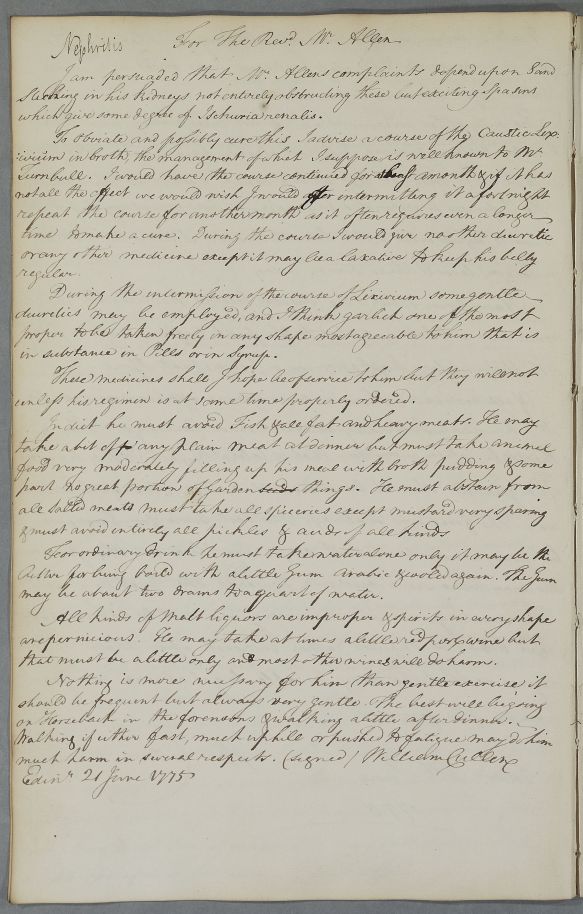 Nephritis
For The Revd. Mr. Allen
I am persuaded that Mr. Allens complaints depend upon Sand
Sticking in his Kidneys not entirely obstructing these but exciting Spasms
which give some degree of Ischuria renalis.
To obviate and possibly cure this I advise a course of the Caustic Lix:
:ivium in broth, the management of which I suppose is well known to Mr
Turnbull. I would have the course continued for a month & if it has
not all the effect we would wish I would after intermitting it a fortnight
repeat the course for another month as it often requires even a longer
time to make a cure. During the course I would give no other diuretic
or any other medicine except it may be a laxative to keep his belly
regular.
During the intermission of the course of Lixivium some gentle
diuretics may be employed, and I think garlick one of the most
proper to be taken freely in any shape most agreeable to him that is
in substance in Pills or in Syrup.
These medicines shall I hope be of service to him but they will not
unless his regimen is at some time properly ordered.
In diet he must avoid Fish & all fat and heavy meats. He may
take a bit of any plain meat at dinner but must take animal
food very moderately filling up his meal with broth pudding & some
part no great portion of Garden things. He must abstain from
all Salted meats must take all spiceries except mustard very sparing
& must avoid intirely all pickles & acids of all kinds
For ordinary drink he must take water alone only it may be the
better for being boild with a little Gum Arabic & cooled again. The Gum
may be about two drams to a quart of water.
All kinds of Malt liquors are improper & spirits in every shape
are pernicious. He may take at times a little red port wine but
that must be a little only and most other wines will do harm.
Nothing is more necessary for him than gentle exercise it
should be frequent but always very gentle. The best will be going
on Horseback in the forenoons & walking a little after dinner.
Walking if either fast, much up hill or pushed to fatigue may do him
much harm in several respects. (signed) William Cullen
Edinr. 21 June 1775